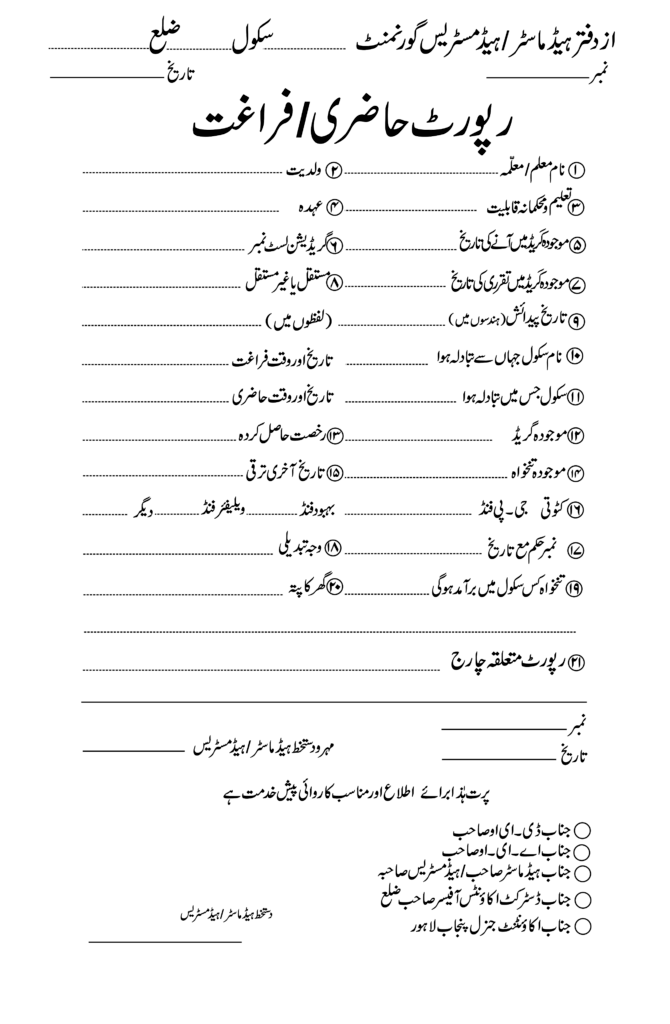 از دفتر ہیڈ ماسٹر / ہیڈ مسٹریس گورنمنٹ ............ سکول ............ ضلع ............
نمبر ____________ تاریخ ____________
رپورٹ حاضری/فراغت
① نام معلم/معلّمہ ............ ② ولدیت ............
③ تعلیم و محکمانہ قابلیت ............ ④ عہدہ ............
⑤ موجودہ گریڈ میں آنے کی تاریخ ............ ⑥ گریڈیشن لسٹ نمبر ............
⑦ موجودہ گریڈ میں تقرری کی تاریخ ............ ⑧ مستقل یا غیر مستقل ............
⑨ تاریخ پیدائش (ہندسوں میں) ............ (لفظوں میں) ............
⑩ نام سکول جہاں سے تبادلہ ہوا ............ تاریخ اور وقت فراغت ............
⑪ سکول جس میں تبادلہ ہوا ............ تاریخ اور وقت حاضری ............
⑫ موجودہ گریڈ ............ ⑬ رخصت حاصل کردہ ............
⑭ موجودہ تنخواہ ............ ⑮ تاریخ آخری ترقی ............
⑯ کٹوتی جی۔پی فنڈ ............ بہبود فنڈ ............ ویلیفئر فنڈ ............ دیگر ............
⑰ نمبر حکم مع تاریخ ............ ⑱ وجہ تبدیلی ............
⑲ تنخواہ کس سکول میں برآمد ہوگی ............ ⑳ گھر کا پتہ ............
㉑ رپورٹ متعلقہ چارج ............
نمبر ____________
تاریخ ____________ مہر و دستخط ہیڈ ماسٹر / ہیڈ مسٹریس ____________
پرت ہٰذا برائے اطلاع اور مناسب کاروائی پیش خدمت ہے
○ جناب ڈی۔ای او صاحب
○ جناب اے۔ای۔او صاحب
○ جناب ہیڈ ماسٹر صاحب/ہیڈ مسٹریس صاحبہ
○ جناب ڈسٹرکٹ اکاؤنٹس آفیسر صاحب ضلع
○ جناب اکاؤنٹنٹ جنرل پنجاب لاہور
دستخط ہیڈ ماسٹر / ہیڈ مسٹریس